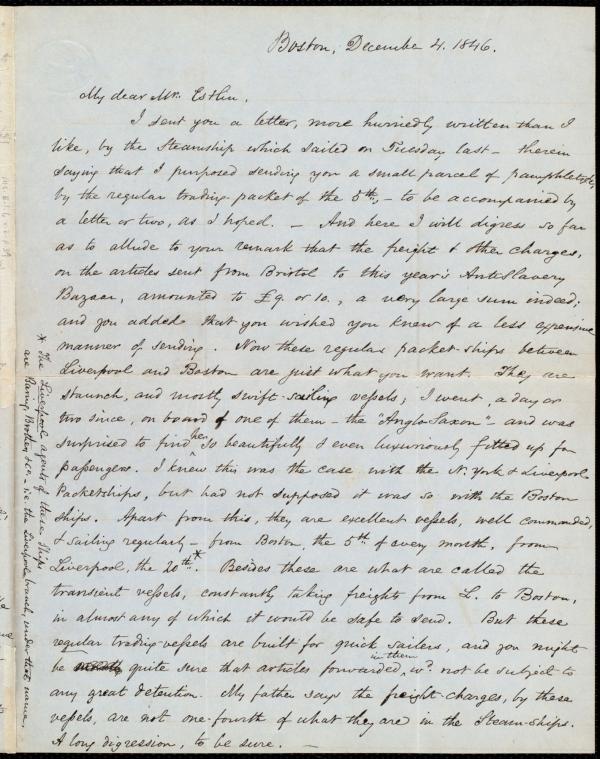 Boston, December 4. 1846.
My dear Mr. Estlin,
I sent you a letter, more hurriedly written than I
like, by the Steamship which sailed on Tuesday last – therein
saying that I purposed sending you a small parcel of pamphlets &c,
by the regular trading-packet of the 5th, – to be accompanied by
a letter or two, as I hoped. – And here I will digress so far
as to allude to your remark that the freight & other charges,
on the articles sent from Bristol to this year's AntiSlavery
Bazaar, amounted to £9. or 10., a very large sum indeed;
and you added that you wished you knew of a less expensive
manner of sending. Now these regular packet-ships between
Liverpool and Boston are just what you want. They are
staunch, and mostly swift-sailing vessels; I went, a day or
two since, on board of one of them – the "Anglo Saxon" – and was
surprised to find her so beautifully & even luxuriously fitted up for
passengers. I knew this was the case with the N. York & Liverpool
Packetships, but had not supposed it was so with the Boston
ships. Apart from this, they are excellent vessels, well commanded,
& sailing regularly – from Boston, the 5th of every month, from
Liverpool, the 20th.* Besides these are what are called the
transient vessels, constantly taking freights from L. to Boston,
in almost any of which it would be safe to send. But these
regular trading-vessels are built for quick sailers, and you might
be quite sure that articles forwarded in them wd. not be subject to
any great detention. My father says the freight-charges, by these
vessels, are not one-fourth of what they are in the Steam-Ships.
A long digression, to be sure. –
* The Liverpool agents of these ships
are Baring, Brothers & Co. – i.e. the Liverpool branch, under that name.